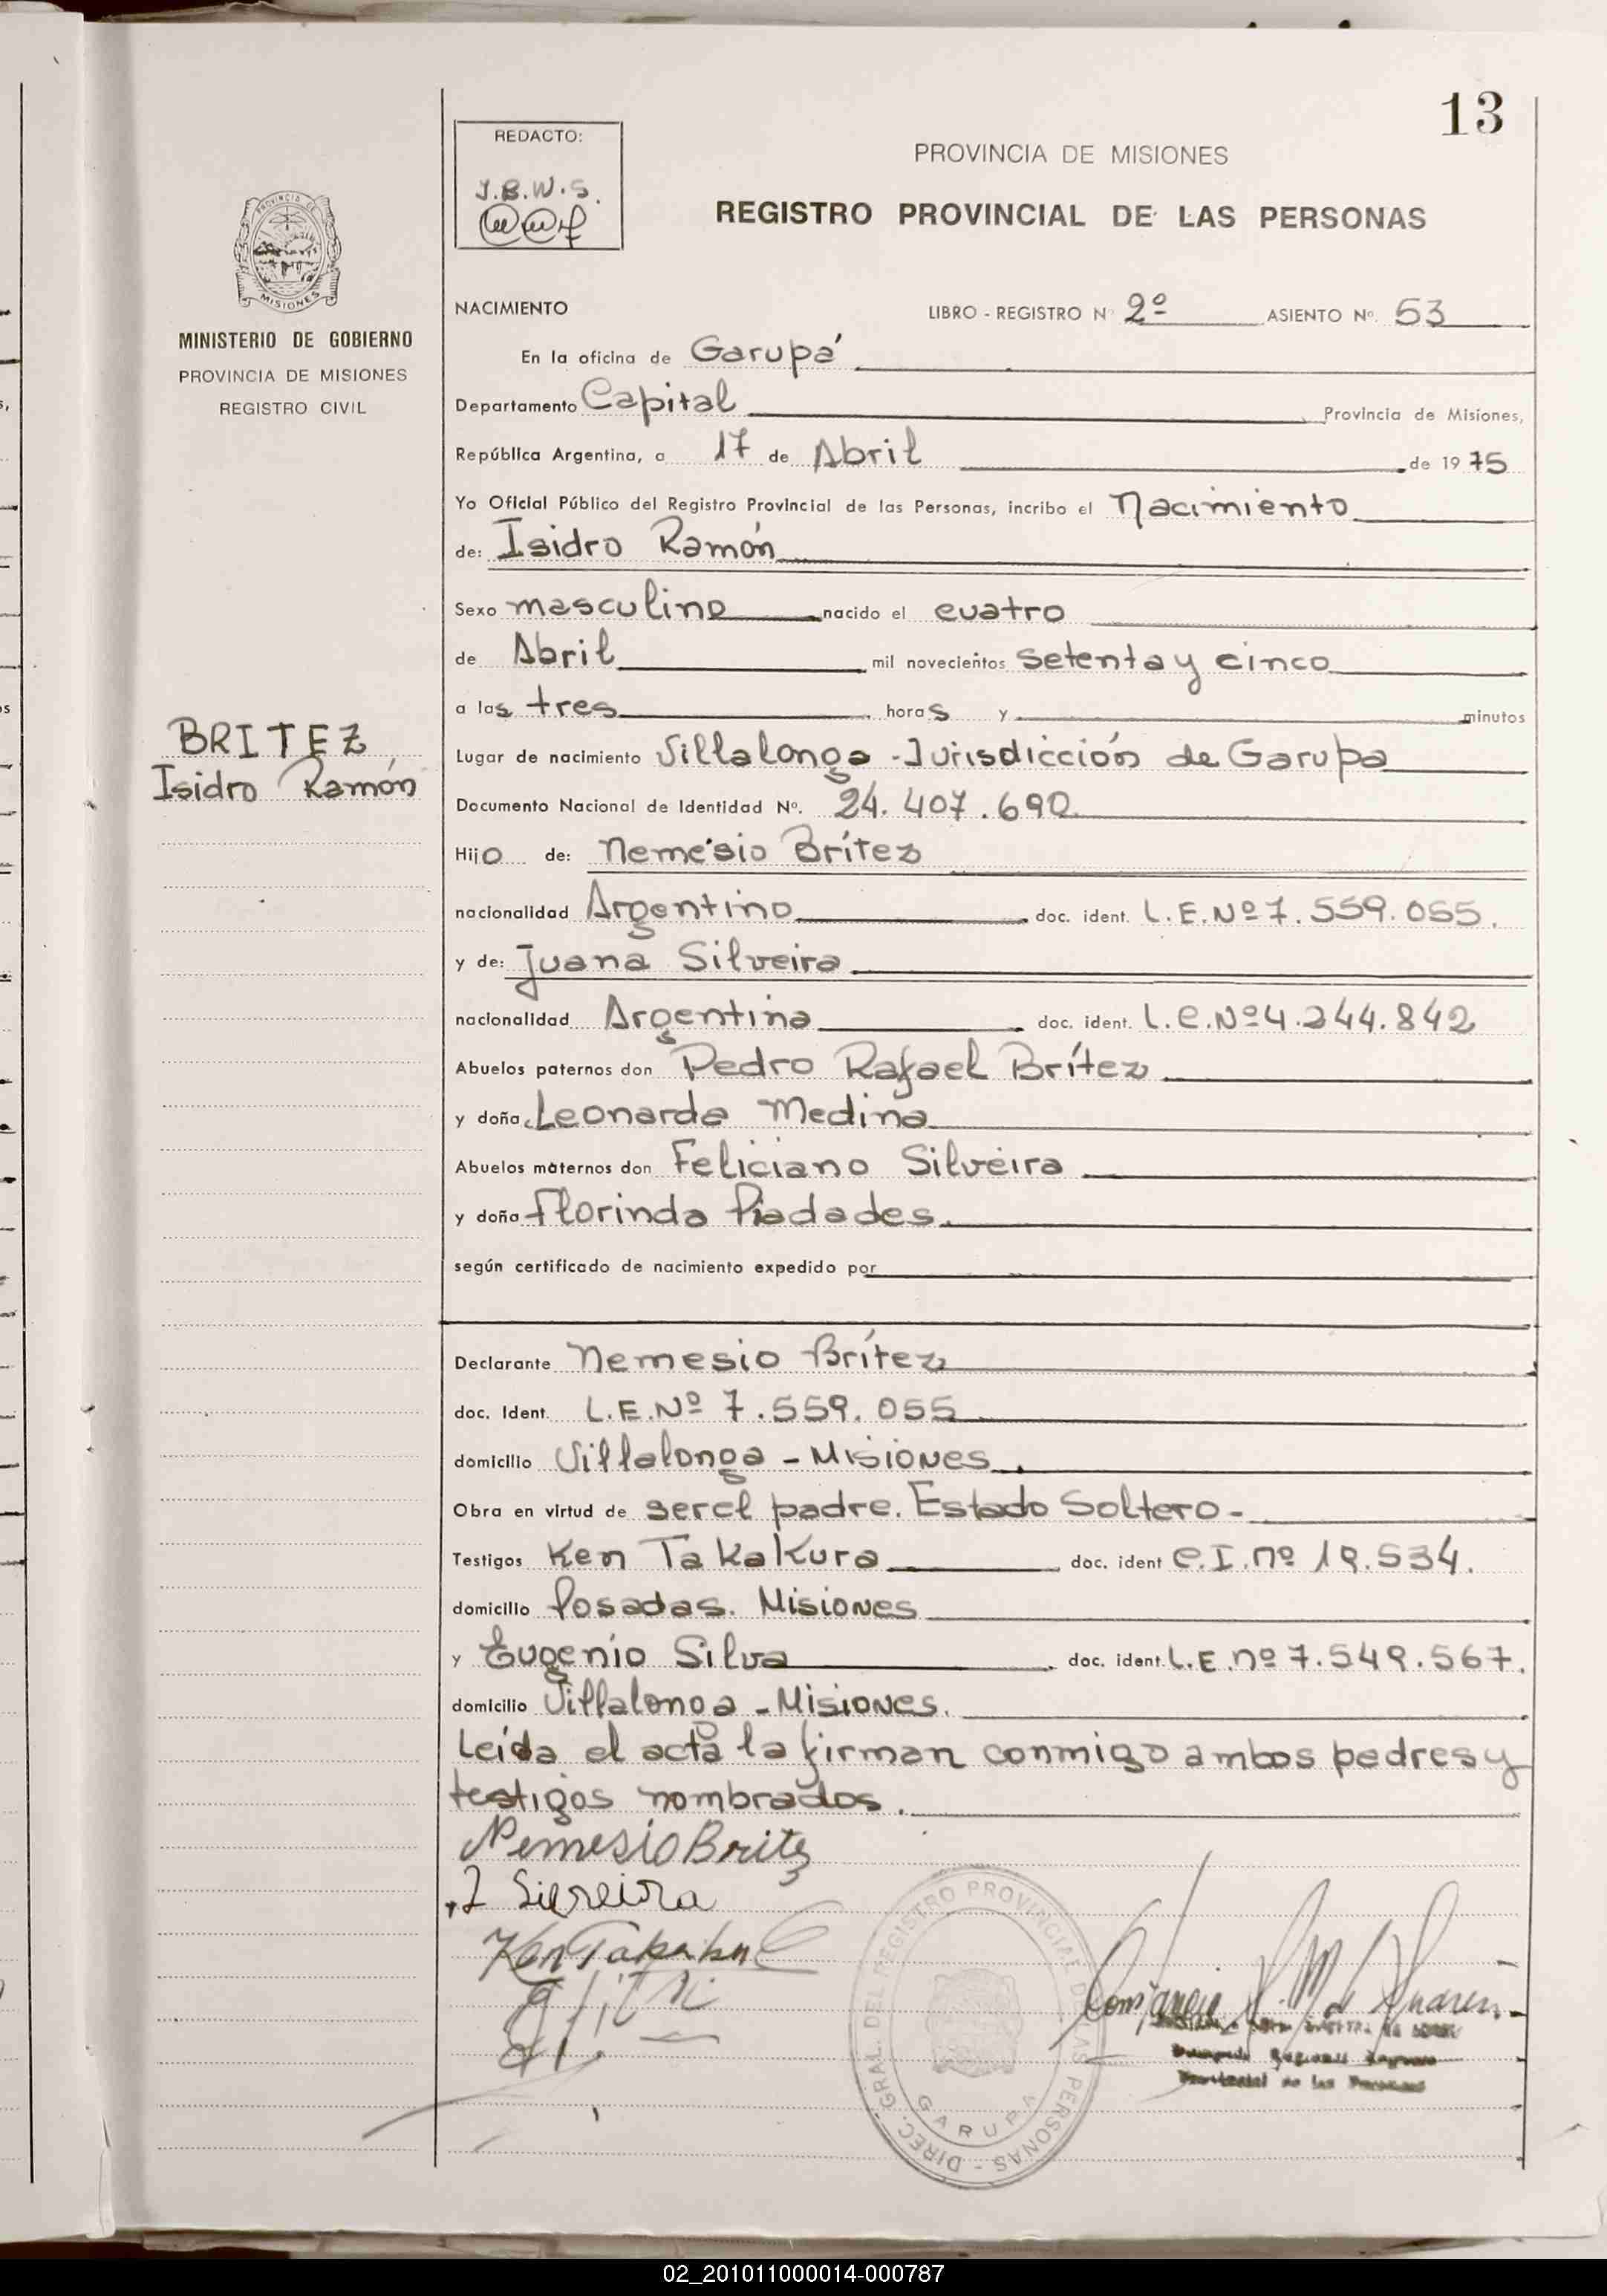 13
REDACTO:
J.B.W.S.
PROVINCIA DE MISIONES
REGISTRO PROVINCIAL DE LAS PERSONAS
PROVINCIA DE MISIONES
MINISTERIO DE GOBIERNO
PROVINCIA DE MISIONES
REGISTRO CIVIL
BRITEZ
Isidro Ramón
NACIMIENTO LIBRO - REGISTRO N° 2º ASIENTO Nº. 53
En la oficina de Garupá
Departamento Capital Provincia de Misiones,
República Argentina, a 17 de Abril de 1975
Yo Oficial Público del Registro Provincial de las Personas, incribo el Nacimiento
de: Isidro Ramón
Sexo masculino nacido el cuatro
de Abril mil novecientos setenta y cinco
a las tres horas y minutos
Lugar de nacimiento Villalonga - Jurisdicción de Garupa
Documento Nacional de Identidad Nº. 24.407.690
Hijo de: Nemesio Brítez
nacionalidad Argentino doc. ident. L.E.Nº 7.559.055.
y de: Juana Silveira
nacionalidad Argentina doc. ident. L.C.Nº 4.244.842
Abuelos paternos don Pedro Rafael Brítez
y doña Leonarda Medina
Abuelos maternos don Feliciano Silveira
y doña Florinda Piadades.
según certificado de nacimiento expedido por
Declarante Nemesio Brítez
doc. Ident. L.E.Nº 7.559.055
domicilio Villalonga - Misiones.
Obra en virtud de ser el padre. Estado Soltero -
Testigos Ken Takakura doc. ident C.I.nº 19.534.
domicilio Posadas. Misiones
y Eugenio Silva doc. ident. L.E.nº 7.549.567.
domicilio Villalonga - Misiones.
Leída el acta la firman conmigo ambos padres y
testigos nombrados.
Nemesio Britez
J Silveira
Ken Takakura
DIREC. GRAL. DEL REGISTRO PROVINCIAL DE LAS PERSONAS -
GARUPA
Provincial de las Personas
02_201011000014-000787